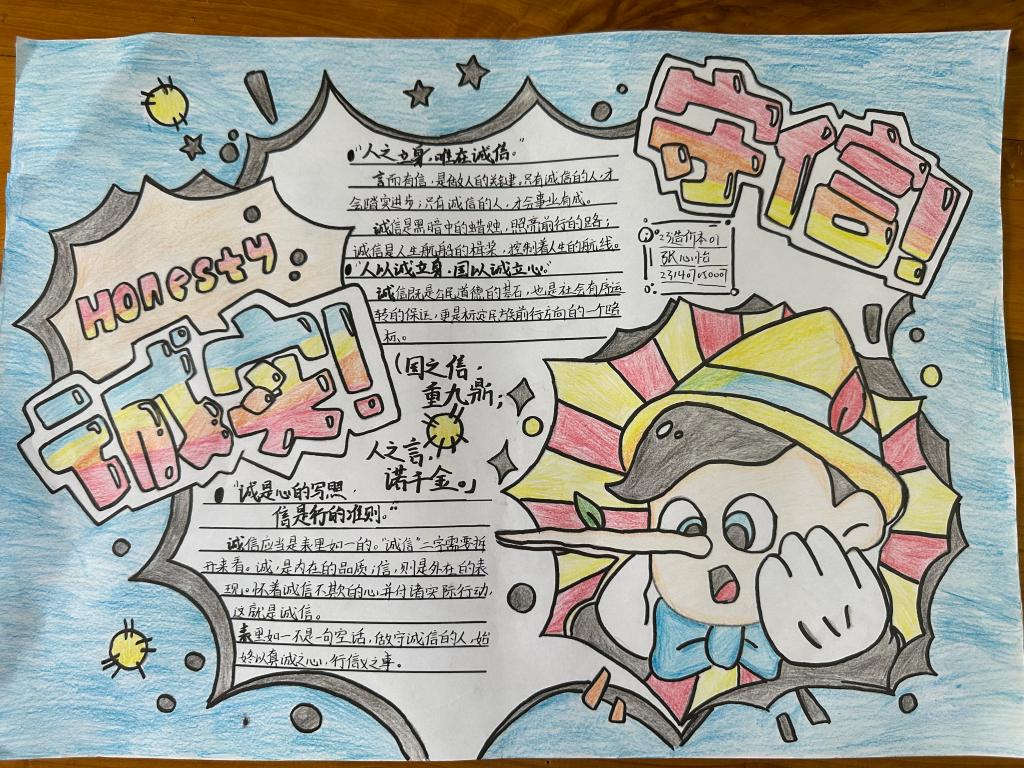 守信!
Honesty
诚实!
"人之立身，唯在诚信。"
言而有信，是做人的关键。只有诚信的人，才
会踏实进步；只有诚信的人，才会事业有成。
诚信是黑暗中的蜡烛，照亮前行的路；
诚信是人生航船的楫桨，控制着人生的航线。
"人以诚立身，国以诚立心。"
诚信既是公民道德的基石，也是社会有序运
转的保证，更是标定民族前行方向的一个路
标。
23造价本01
张心怡
231407030
(国之信，
重九鼎；
人之言，
诺千金。」
"诚是心的写照，
信是行的准则。"
诚信应当是表里如一的。"诚信"二字需要拆
开来看。诚，是内在的品质；信，则是外在的表
现。怀着诚信不欺的心并付诸实际行动，
这就是诚信。
表里如一不是一句空话，做守诚信的人，始
终以真诚之心，行信义之事。